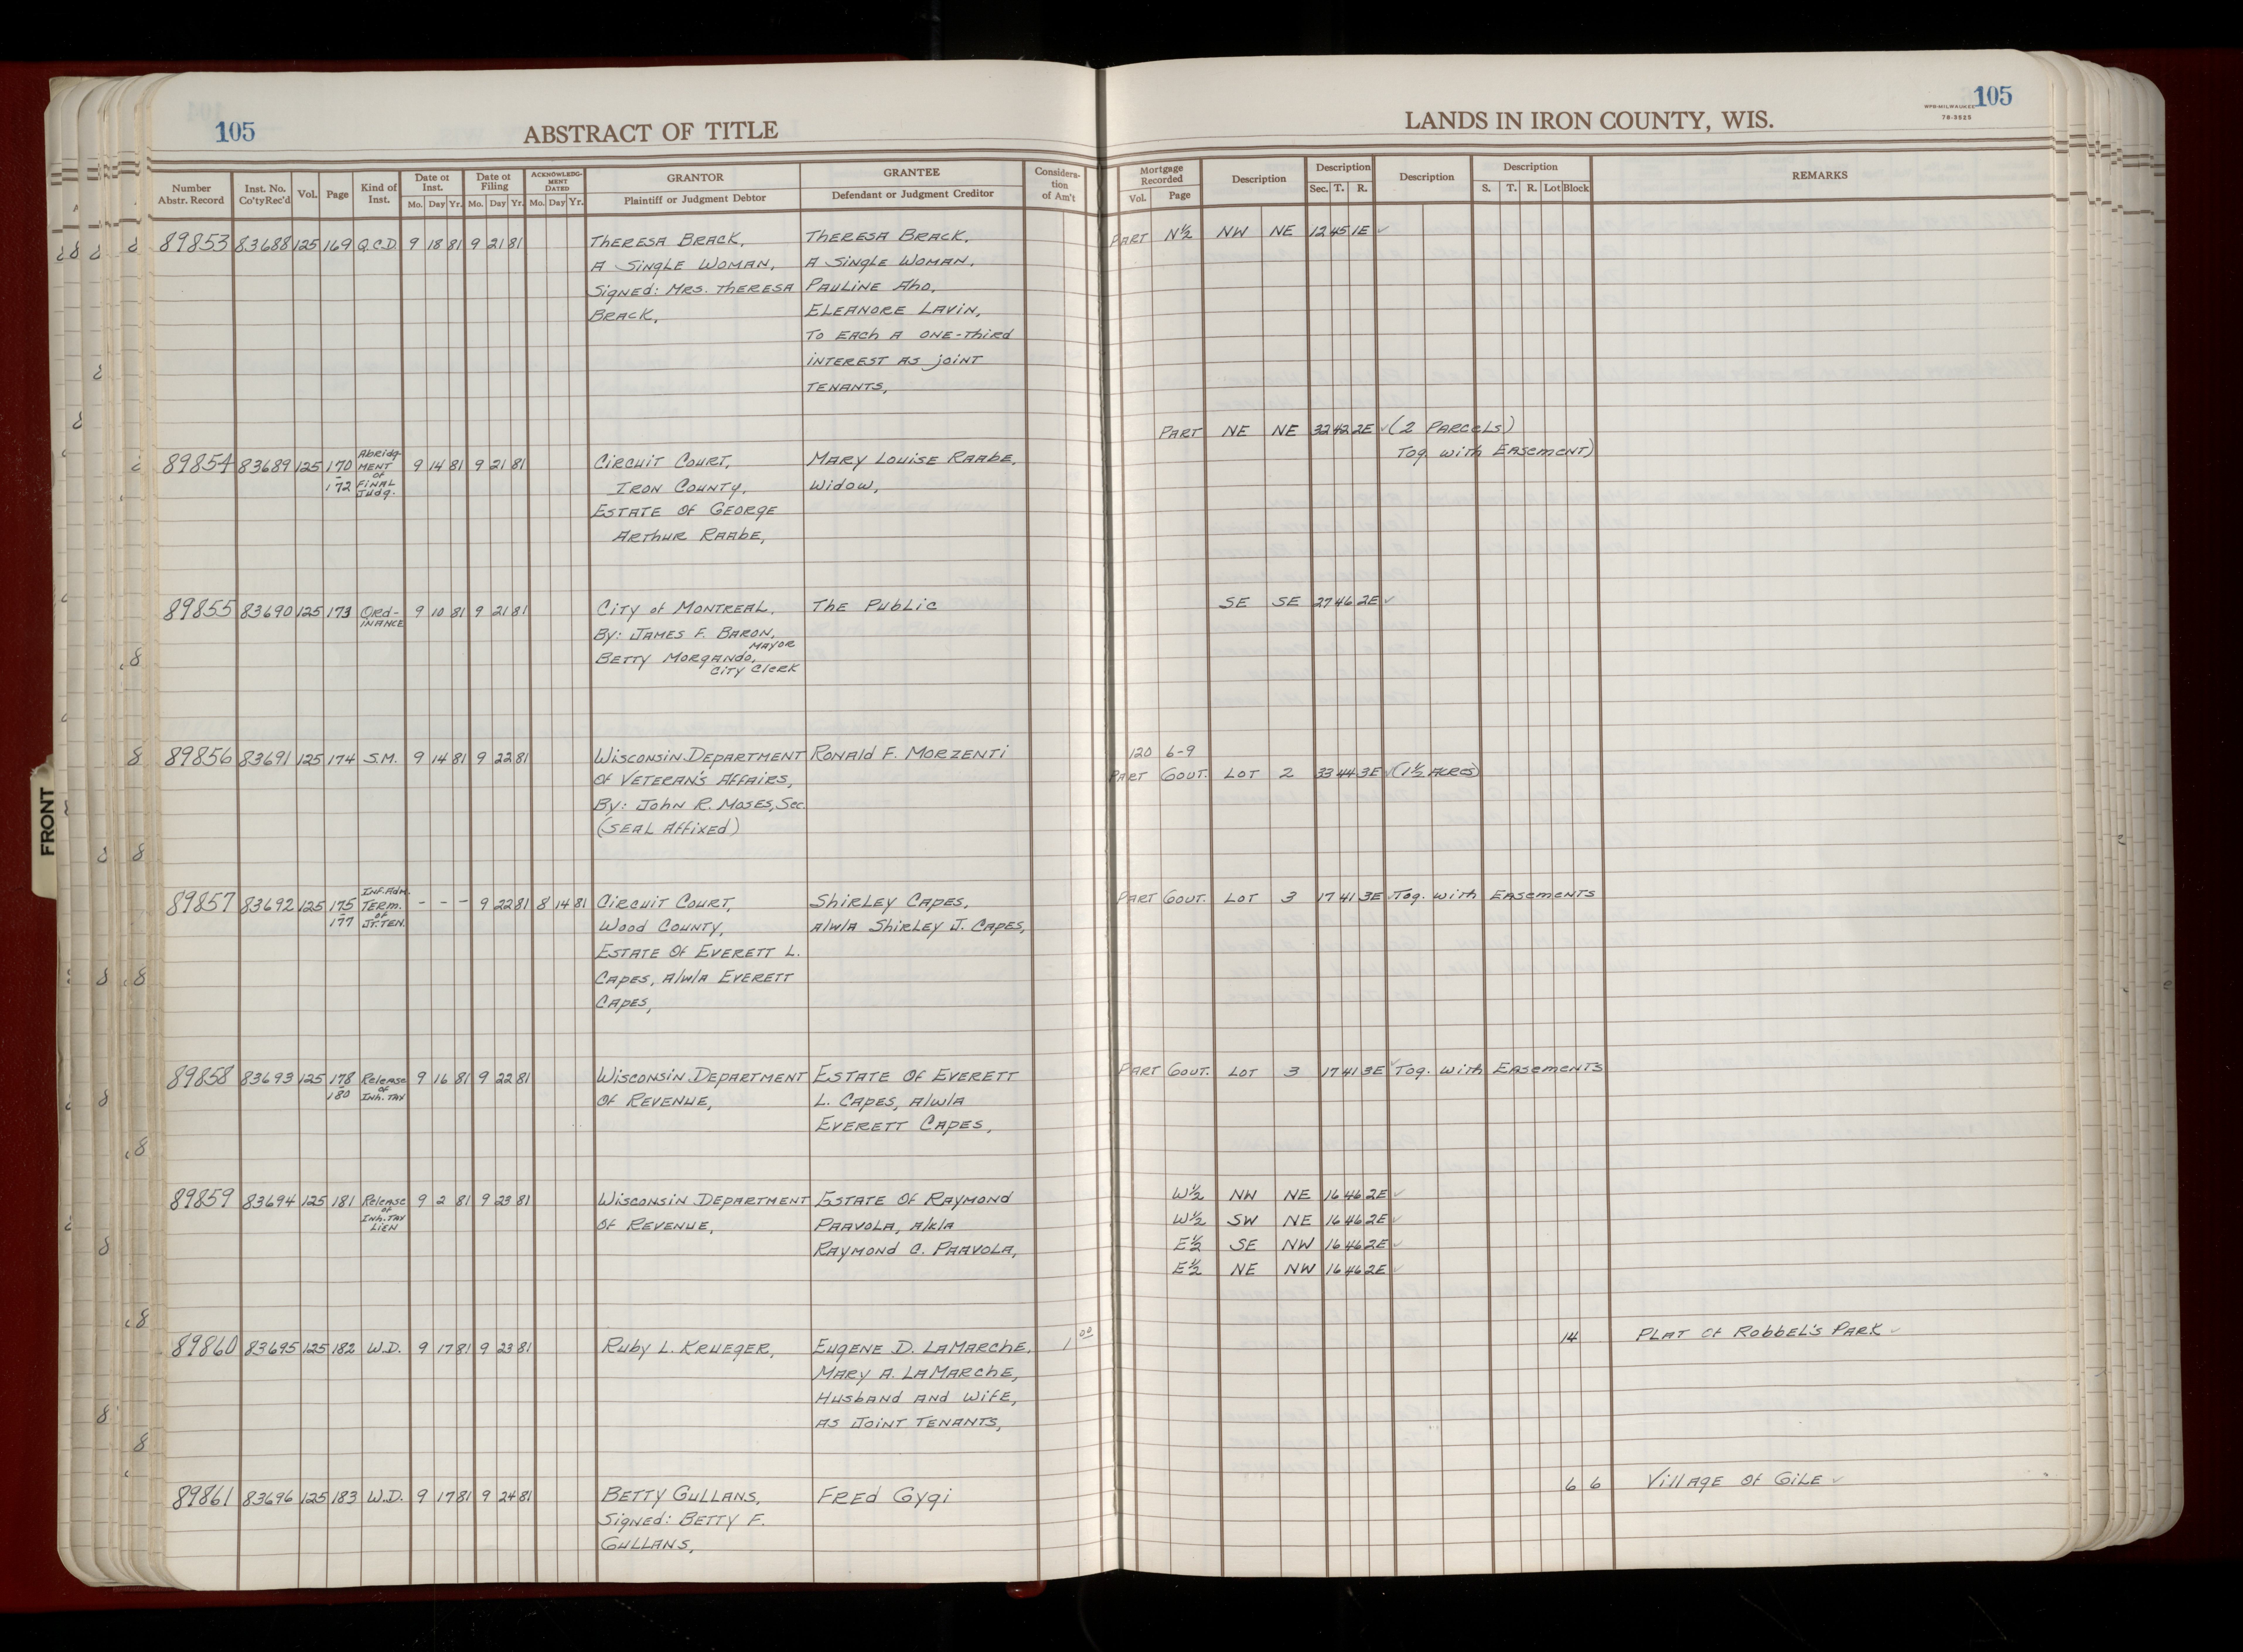 105
ABSTRACT OF TITLE
LANDS IN IRON COUNTY, WIS.
WPB-MILWAUKEE
78-3525
105
Number Abstr. Record | Inst. No. Co'ty Rec'd | Vol. | Page | Kind of Inst. | Date of Inst. Mo. Day Yr. | Date of Filing Mo. Day Yr. | ACKNOWLEDGMENT DATED Mo. Day Yr. | GRANTOR Plaintiff or Judgment Debtor | GRANTEE Defendant or Judgment Creditor | Consideration of Am't | Mortgage Recorded Vol. Page | Description | Description Sec. T. R. | Description | Description S. T. R. Lot Block | REMARKS
89853 83688 125 169 Q.C.D. 9 18 81 9 21 81 Theresa Brack, Theresa Brack, Part N½ NW NE 12 45 1E ✓
A Single Woman, A Single Woman,
Signed: Mrs. Theresa Pauline Aho,
Brack, Eleanore Lavin,
To Each A one-third
interest as joint
tenants,
Part NE NE 32 42 2E ✓ (2 Parcels)
Tog with Easement)
89854 83689 125 170-172 Abridgment of Final Judg. 9 14 81 9 21 81 Circuit Court, Mary Louise Raabe,
Iron County, Widow,
Estate of George
Arthur Raabe,
89855 83690 125 173 Ordinance 9 10 81 9 21 81 City of Montreal, The Public SE SE 27 46 2E ✓
By: James F. Baron, Mayor
Betty Morgando, City Clerk
89856 83691 125 174 S.M. 9 14 81 9 22 81 Wisconsin Department Ronald F. Morzenti 120 6-9
of Veteran's Affairs, Part Gout. Lot 2 33 44 3E ✓ (1½ Acres)
By: John R. Moses, Sec.
(Seal Affixed)
89857 83692 125 175-177 Inf. Adm. Term. of Jt. Ten. - - - 9 22 81 8 14 81 Circuit Court, Shirley Capes, Part Gout. Lot 3 17 41 3E ✓ Tog. with Easements
Wood County, a/w/a Shirley J. Capes,
Estate of Everett L.
Capes, a/w/a Everett
Capes,
89858 83693 125 178-180 Release of Inh. Tax 9 16 81 9 22 81 Wisconsin Department Estate of Everett Part Gout. Lot 3 17 41 3E ✓ Tog. with Easements
of Revenue, L. Capes, a/w/a
Everett Capes,
89859 83694 125 181 Release of Inh. Tax Lien 9 2 81 9 23 81 Wisconsin Department Estate of Raymond W½ NW NE 16 46 2E ✓
of Revenue, Paavola, a/k/a W½ SW NE 16 46 2E ✓
Raymond C. Paavola, E½ SE NW 16 46 2E ✓
E½ NE NW 16 46 2E ✓
89860 83695 125 182 W.D. 9 17 81 9 23 81 Ruby L. Krueger, Eugene D. LaMarche, 1 00 14 Plat of Robbel's Park ✓
Mary A. LaMarche,
Husband and Wife,
as Joint Tenants,
89861 83696 125 183 W.D. 9 17 81 9 24 81 Betty Gullans, Fred Gygi 6 6 Village of Gile ✓
Signed: Betty F.
Gullans,
FRONT